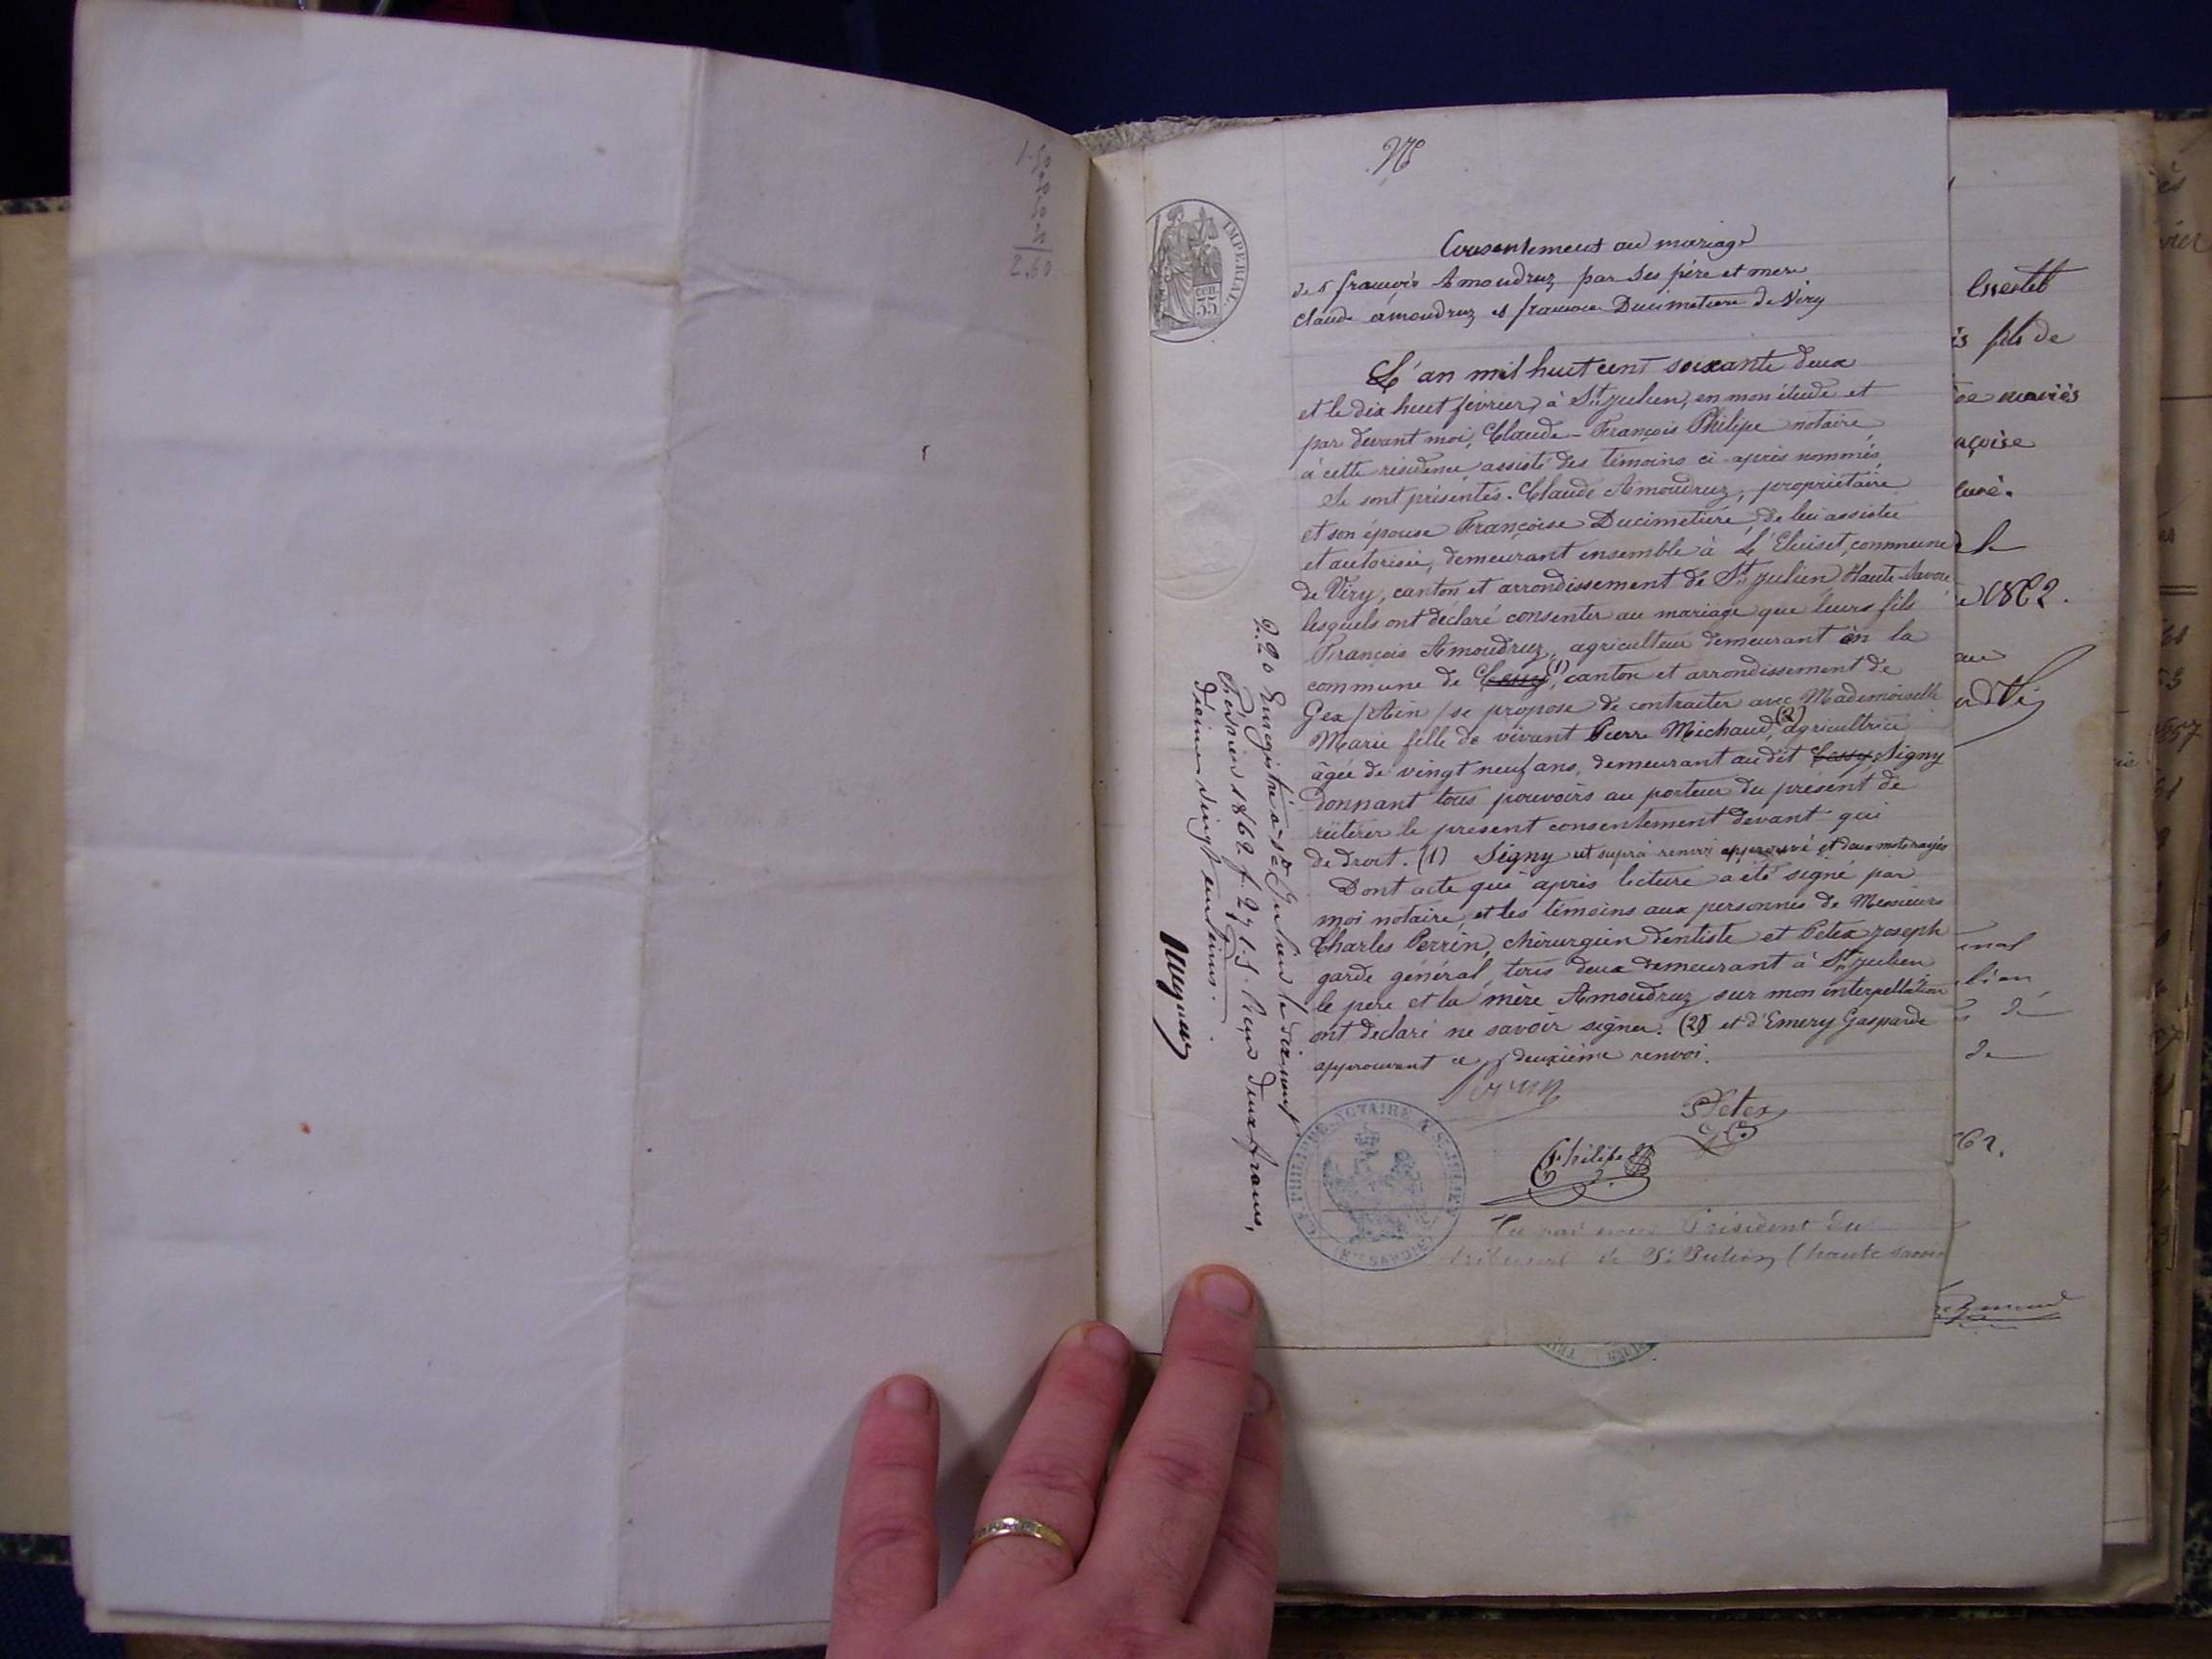 1.50
50
2.60
IMPERIAL
CEN. 55
Consentement au mariage
de s. françois Amoudruz par ses père et mere
claude amoudruz et françoise Ducimetiere de Viry
L'an mil huit cent soixante deux
et le dix huit février, à St Julien, en mon étude et
par devant moi, Claude-François Philipe notaire
à cette résidence assisté des témoins ci-après nommés,
Se sont présentés. Claude Amoudruz, propriétaire
et son épouse Françoise Ducimetière, de lui assistée
et autorisée, demeurant ensemble à L'Eluiset, commune
de Viry, canton et arrondissement de St Julien Haute-Savoie
lesquels ont déclaré consenter au mariage que leurs fils
François Amoudruz, agriculteur demeurant en la
commune de Cessy (1), canton et arrondissement de
Gex /Ain/ se propose de contracter avec Mademoiselle
Marie fille de vivant Pierre Michaud, (2) agricultrice
âgée de vingt neuf ans, demeurant audit Cessy Signy
donnant tous pouvoirs au porteur du présent de
réiterer le present consentement devant qui
de droit. (1) Signy ut suprà renvoi approuvé et deux mots rayés
Dont acte qui après lecture a été signé par
moi notaire, et les témoins aux personnes de Messieurs
Charles Perrin, chirurgien dentiste et Petex Joseph
garde général, tous deux demeurant à St Julien
le père et la mère Amoudruz sur mon interpellation
ont déclaré ne savoir signer. (2) et d'Emery Gasparde
approuvant ce deuxième renvoi.
Petex
Philipe
C.F. PHILIPPE NOTAIRE A ST JULIEN
(HTE SAVOIE)
Vu par nous Président du
tribunal de St Julien (haute savoie
2.20 Enregistré à St Julien le dix neuf
Février 1862 f. 27 Reçu deux francs,
décimes vingt centimes.
fils de
mariés
1862.
de